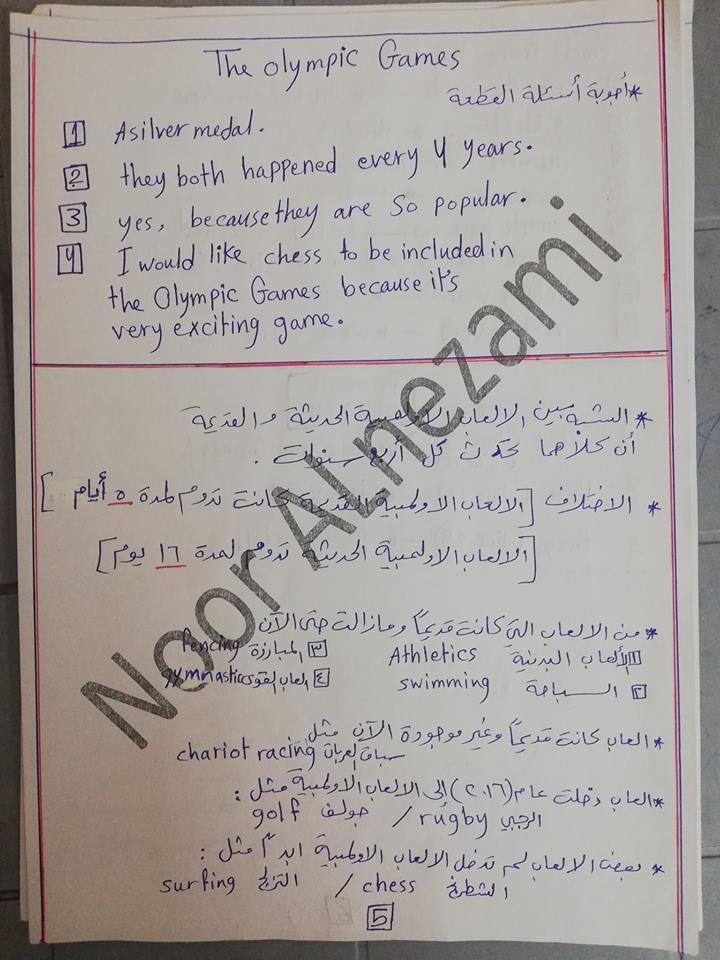 The Olympic Games
* أجوبة أسئلة القطعة
1 A silver medal.
2 they both happened every 4 years.
3 yes, because they are so popular.
4 I would like chess to be included in
the Olympic Games because it's
very exciting game.
* الشبه بين الالعاب الاولمبية الحديثة والقديمة
أن كلاهما تحدث كل أربع سنوات .
* الاختلاف [الالعاب الاولمبية القديمة كانت تدوم لمدة ٥ أيام]
[الالعاب الاولمبية الحديثة تدوم لمدة ١٦ يوم]
* من الالعاب التي كانت قديماً ومازالت حتى الآن
١ الألعاب البدنية Athletics ٣ المبارزة fencing
٢ السباحة swimming ٤ العاب القوى gymnastics
* العاب كانت قديماً وغير موجودة الآن مثل
سباق العربات chariot racing
* العاب دخلت عام (٢٠١٦) إلى الالعاب الاولمبية مثل :
الرجبي rugby / جولف golf
* بعض الالعاب لم تدخل الالعاب الاولمبية ابداً مثل :
الشطرنج chess / التزلج surfing
5
Noor ALnezami